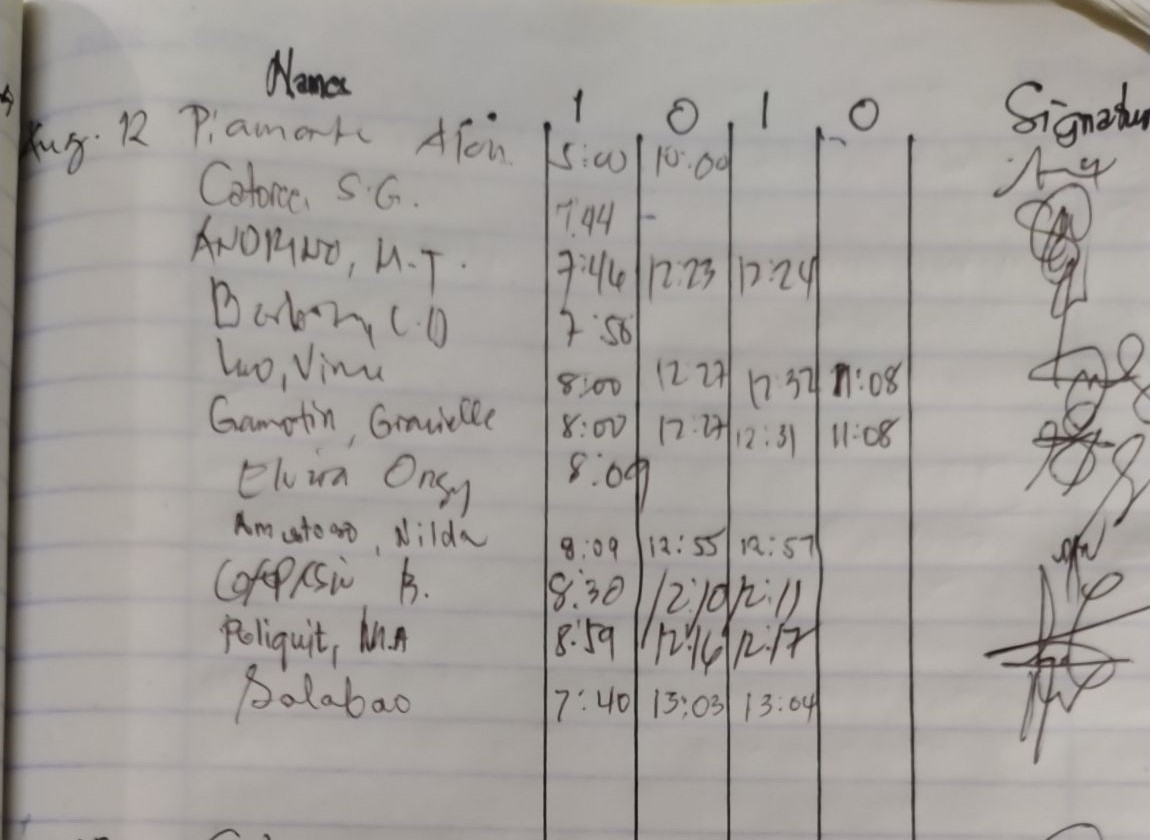 Name I O I O Signature
Aug. 12 Piamonte 5:00 10:00
Catorce, S.G. 7:44 -
M.T. 7:46 12:23 12:24
C.O 7:58
8:00 12:27 12:32 11:08
Gamotin, Gravielle 8:00 12:27 12:31 11:08
Elvira Ongy 8:09
Nilda 8:09 12:55 12:57
B. 8:30 12:10 12:11
Poliquit, M.A 8:59 12:16 12:17
Salabao 7:40 13:03 13:04